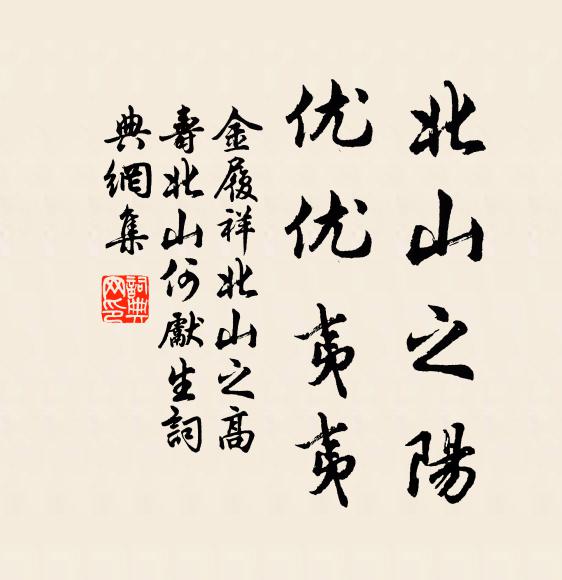 北山之陽
优优夷夷
金履祥北山之高
壽北山何獻生詞
典網集
詞典网印